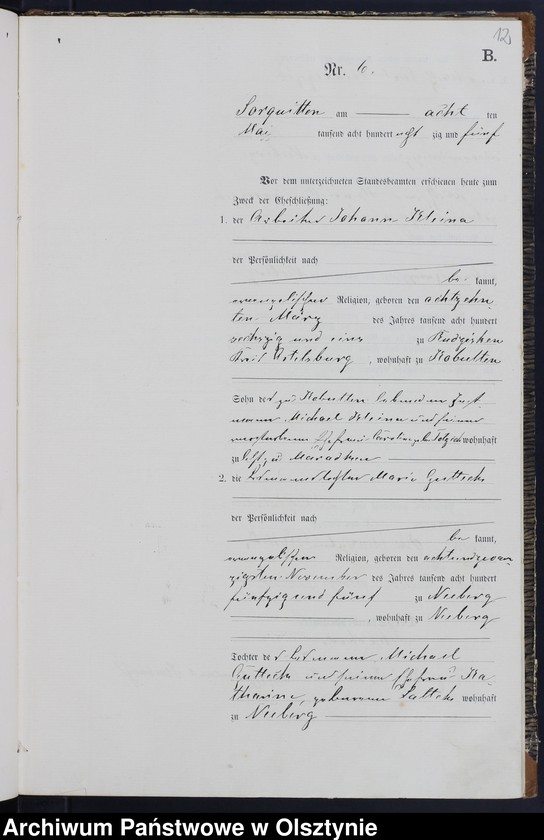 12
B.
Nr. 6.
Sorquitten am acht ten
Mai tausend acht hundert acht zig und fünf
Vor dem unterzeichneten Standesbeamten erschienen heute zum
Zweck der Eheschließung:
1. der Arbeiter Johann
der Persönlichkeit nach
be kannt,
evangelischer Religion, geboren den achtzehn
ten März des Jahres tausend acht hundert
sechszig und eins zu Rudzisken
Kreis Ortelsburg, wohnhaft zu Kobulten
Sohn des zu Kobulten lebenden
Michael und seiner
verstorbenen Ehefrau Caroline geb. wohnhaft
zu Maradken
2. die Marie Gutteck
der Persönlichkeit nach
be kannt,
evangelischen Religion, geboren den achtundzwan
zigsten November des Jahres tausend acht hundert
fünfzig und fünf zu Neeberg
, wohnhaft zu Neeberg
Tochter des Michael
Gutteck und seiner Ehefrau Ka-
tharine, geborenen wohnhaft
zu Neeberg
Archiwum Państwowe w Olsztynie